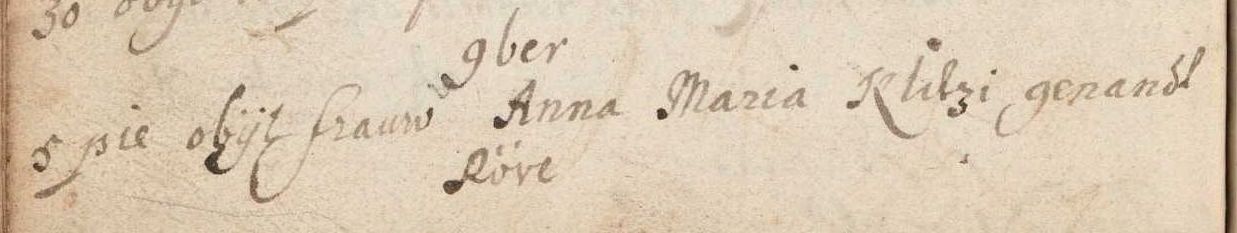 30 obijt
9ber
5 pie obijt frauw Anna Maria Klitzi genandt
Röve